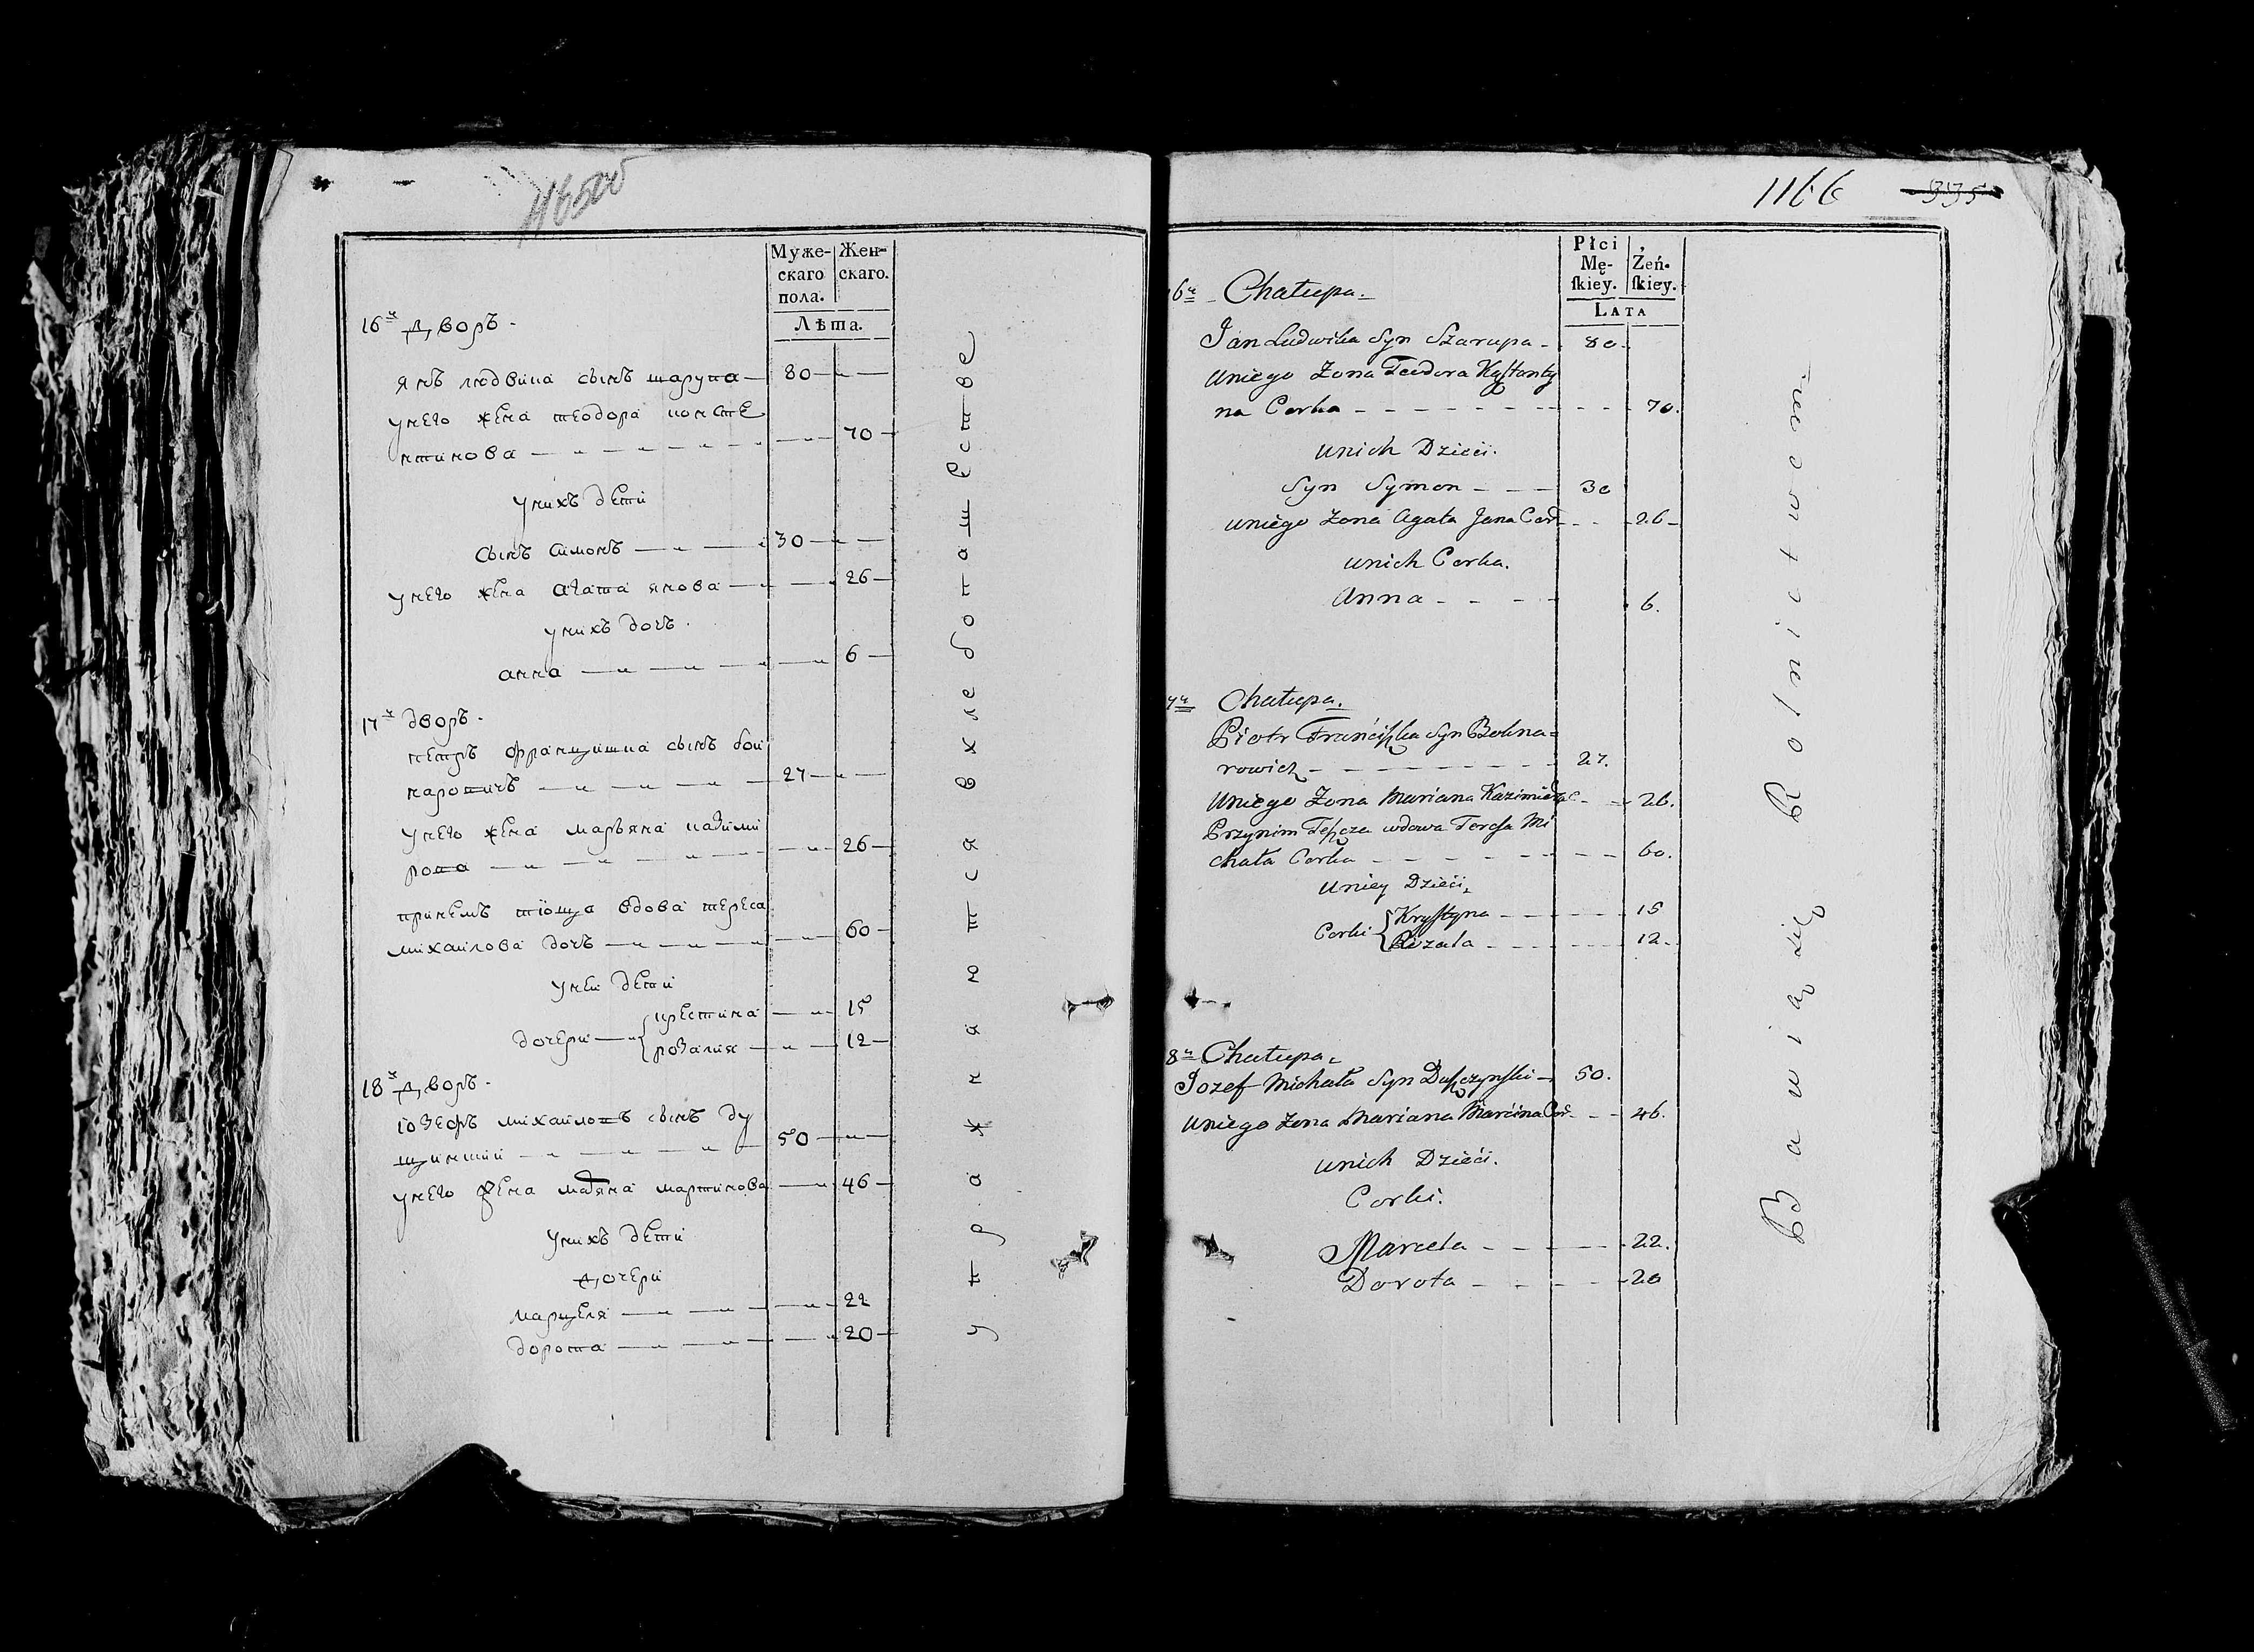 Муже-
скаго
пола.
Жен-
скаго.
Лѣта.
16й дворъ.
янъ людвика сынъ шарупа 80
унего жена теодора консте
нтинова 70
унихъ дети
сынъ симонъ 30
унего жена агата янова 26
унихъ дочъ.
анна 6
17й дворъ.
петръ францишка сынъ бои
наровичъ 27
унего жена марьяна казими
рова 26
принемъ тіоща вдова тереса
михаилова дочъ 60
унеи дети
дочери крестина 15
розалия 12
18й дворъ.
іозефъ михаиловъ сынъ ду
щинскии 50
унего жена марьяна мартинова 46
унихъ дети
дочери
марцеля 22
дорота 20
упражняются вхлебопашестве
1166 335
Płci
Mę-
ſkiey.
Żeń-
ſkiey.
LATA
6ta Chałupa.
Jan Ludwika Syn Szarupa 80.
Uniego Zona Teodora Kąſtanty
na Corka 70.
unich Dzieci.
Syn Symon 30
uniego Zona Agata Jana Cor 26
unich Corka.
Anna 6.
7ma Chałupa.
Piotr Franciſzka Syn Bohna=
rowicz 27.
Uniego Zona Mariana Kazimierza C. 26.
Przynim Teſzcza wdowa Tereſa Mi
chała Corka 60.
Uniey Dzieci.
Corki Kryſtyna 15
Rozala 12.
8ma Chałupa.
Jozef Michała Syn Duſzczynſki 50.
Uniego Zona Mariana Marcina Cor 46.
Unich Dzieci.
Corki.
Marcela 22.
Dorota 20
Bawią się Rolnictwem.